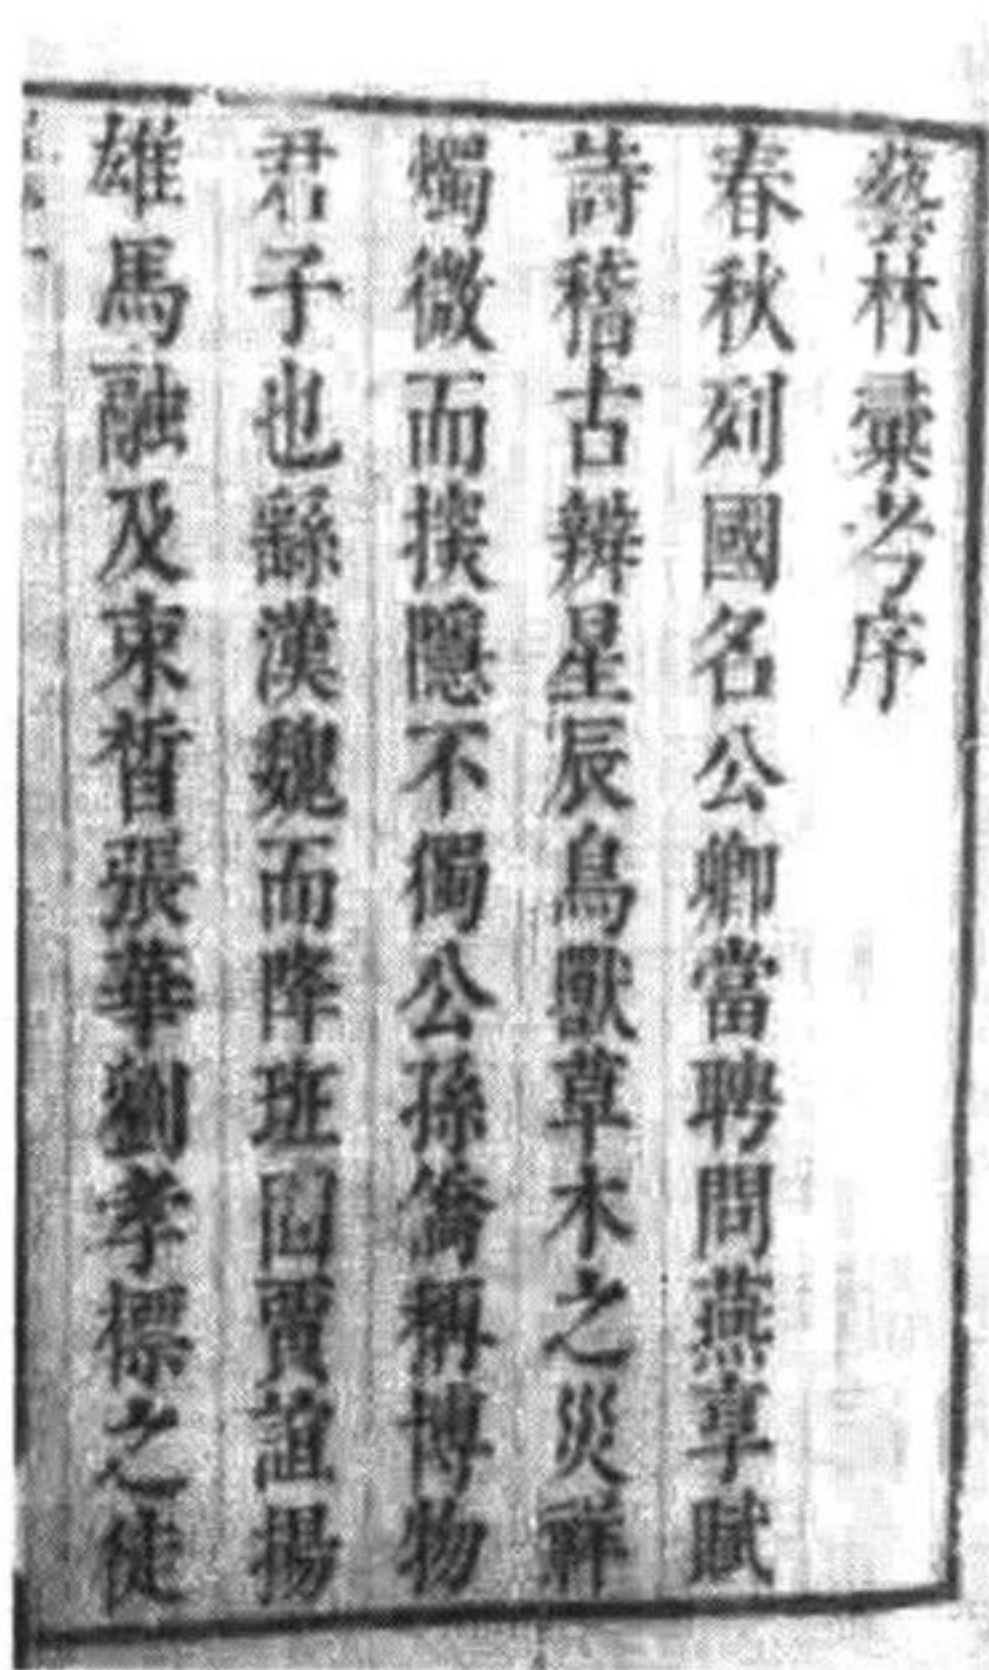 藝林彙考序
春秋列國名公卿當聘問燕享賦
詩稽古辨星辰鳥獸草木之災祥
燭微而摸隱不獨公孫僑稱博物
君子也繇漢魏而降班固賈誼揚
雄馬融及束晳張華劉孝標之徒